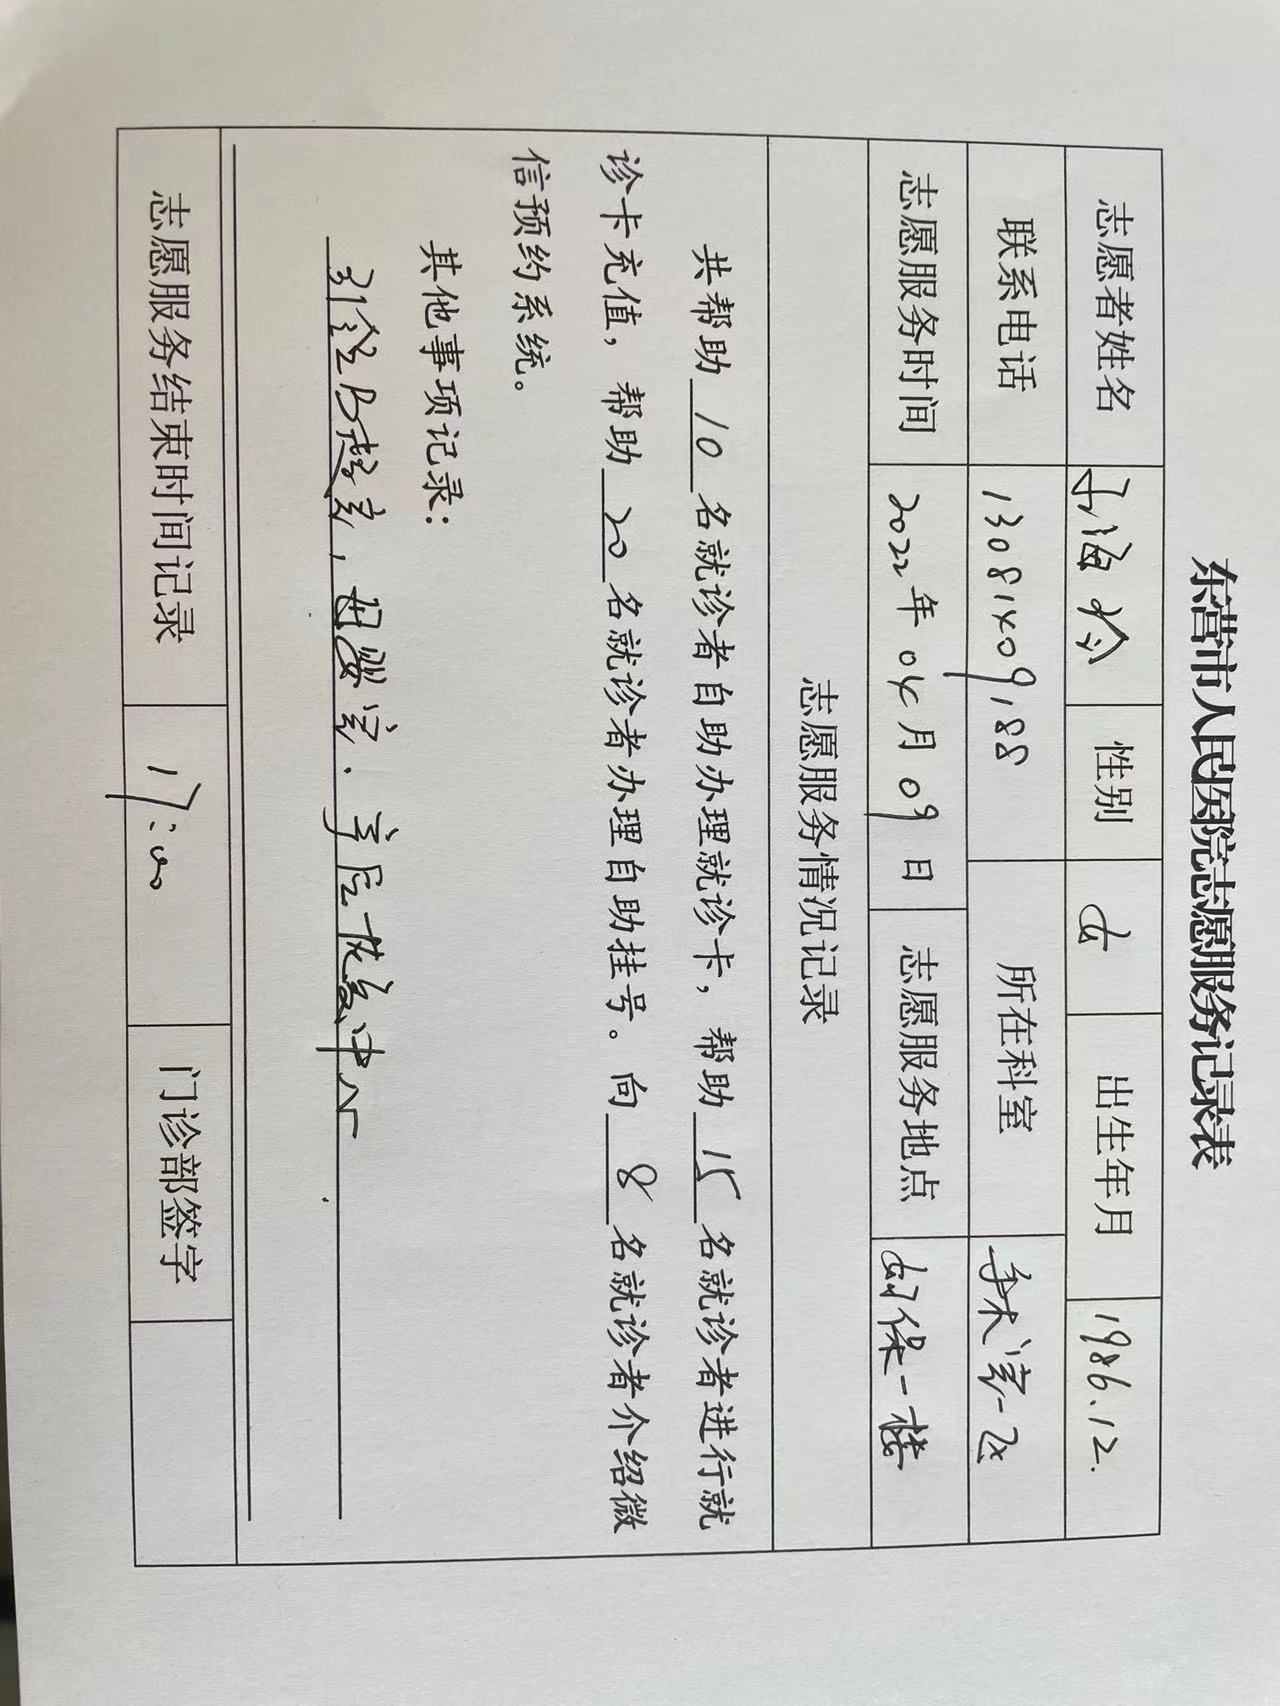 东营市人民医院志愿服务记录表
志愿者姓名 海玲 性别 女 出生年月 1986.12.
联系电话 13081409188 所在科室 手术室一区
志愿服务时间 2022年04月09日 志愿服务地点 妇保一楼
志愿服务情况记录
共帮助 10 名就诊者自助办理就诊卡，帮助 15 名就诊者进行就
诊卡充值，帮助 20 名就诊者办理自助挂号。向 8 名就诊者介绍微
信预约系统。
其他事项记录：
引位B超室，母婴室.产后恢复中心
志愿服务结束时间记录 17:00 门诊部签字